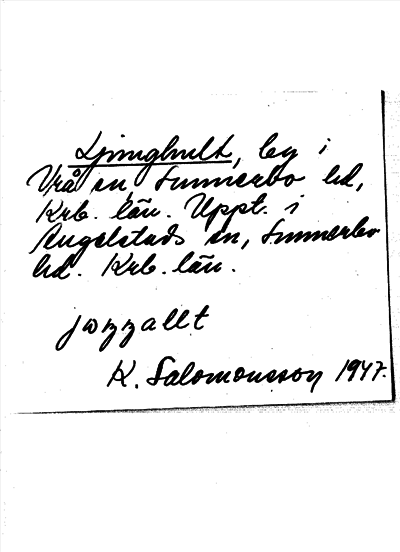 Ljunghult, by i
Vrå sn, Sunnerbo hd,
Krb. län. Uppt. i
Angelstads sn, Sunnerbo
hd. Krb. län.
K. Salomonsson 1947.